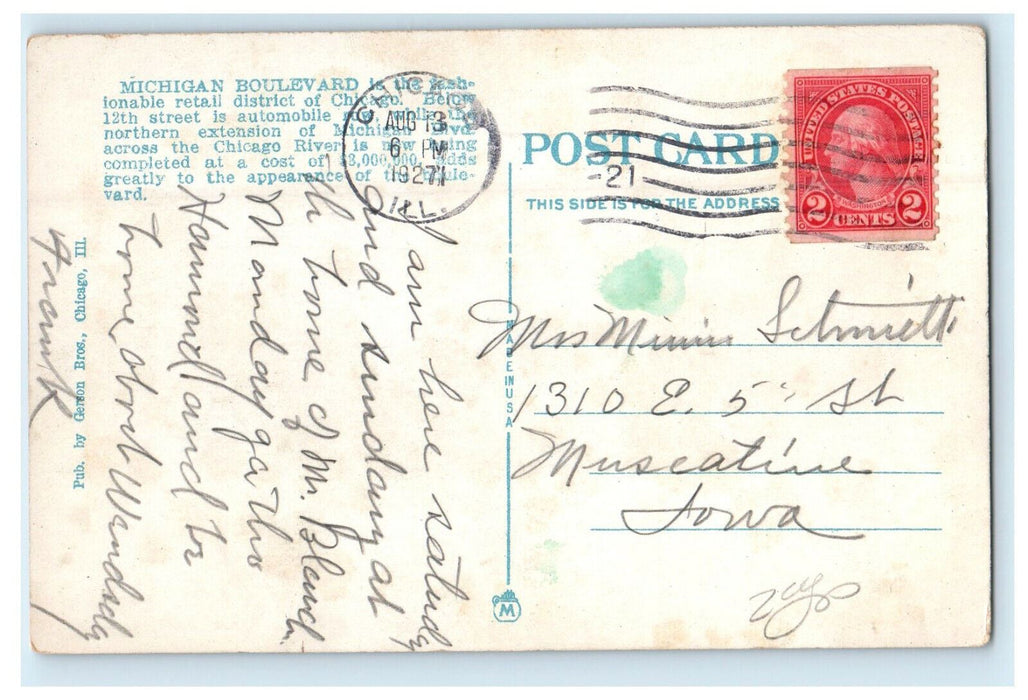 MICHIGAN BOULEVARD is the fash-
ionable retail district of Chicago. Below
12th street is automobile row while the
northern extension of Michigan Blvd.
across the Chicago River is now being
completed at a cost of $3,000,000, adds
greatly to the appearance of the boule-
vard.
CHICAGO
AUG 13
6 PM
1927
ILL.
21
POST CARD
THIS SIDE IS FOR THE ADDRESS
UNITED STATES POSTAGE
WASHINGTON
2 CENTS 2
I am here satudy
and sunday at
th home of Mr.
Monday go to
Hammond and to
home abort Wendsedy
Frank
Mrs Minnie Schmidt
1310 E. 5" St
Muscatine
Iowa
MADE IN USA
M
Pub. by Gerson Bros., Chicago, Ill.